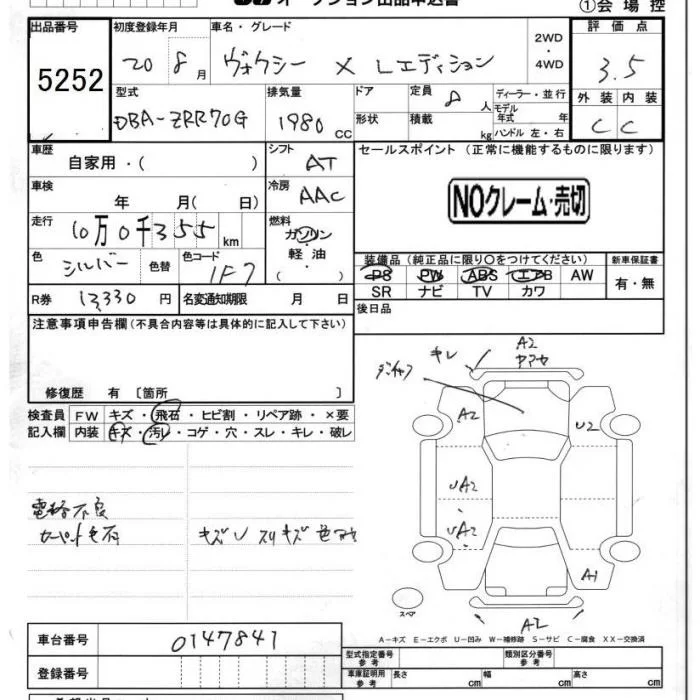 オークション出品申込書
①会場控
出品番号 初度登録年月 車名・グレード 2WD・4WD 評価点
5252 20 8月 ヴォクシー X Lエディション 3.5
型式 排気量 ドア 定員 8人 ディーラー・並行 外装 内装
DBA-ZRR70G 1980cc 形状 積載 kg モデル年式 年 ハンドル 左・右 C C
車歴 自家用・( ) シフト AT セールスポイント(正常に機能するものに限ります)
車検 年 月( 日) 冷房 AAC NOクレーム・売切
走行 10万0千355km 燃料 ガソリン 軽油 ( )
色 シルバー 色替 色コード 1F7
装備品(純正品に限り○をつけてください) 新車保証書
PS PW ABS エアB AW 有・無
SR ナビ TV カワ
R券 13,330円 名変通知期限 月 日 後日品
注意事項申告欄(不具合内容等は具体的に記入して下さい)
修復歴 有〔箇所 〕
検査員 FW キズ・飛石・ヒビ割・リペア跡・×要
記入欄 内装 キズ・汚レ・コゲ・穴・スレ・キレ・破レ
キレ A2
A2 U2
UA2
UA2
A1
A2
スペア
電格不良
キズU スリキズ
A-キズ E-エクボ U-凹み W-補修跡 S-サビ C-腐食 XX-交換済
車台番号 0147841
型式指定番号 参考 類別区分番号 参考
登録番号 車庫証明用 参考 長さ cm 幅 cm 高さ cm